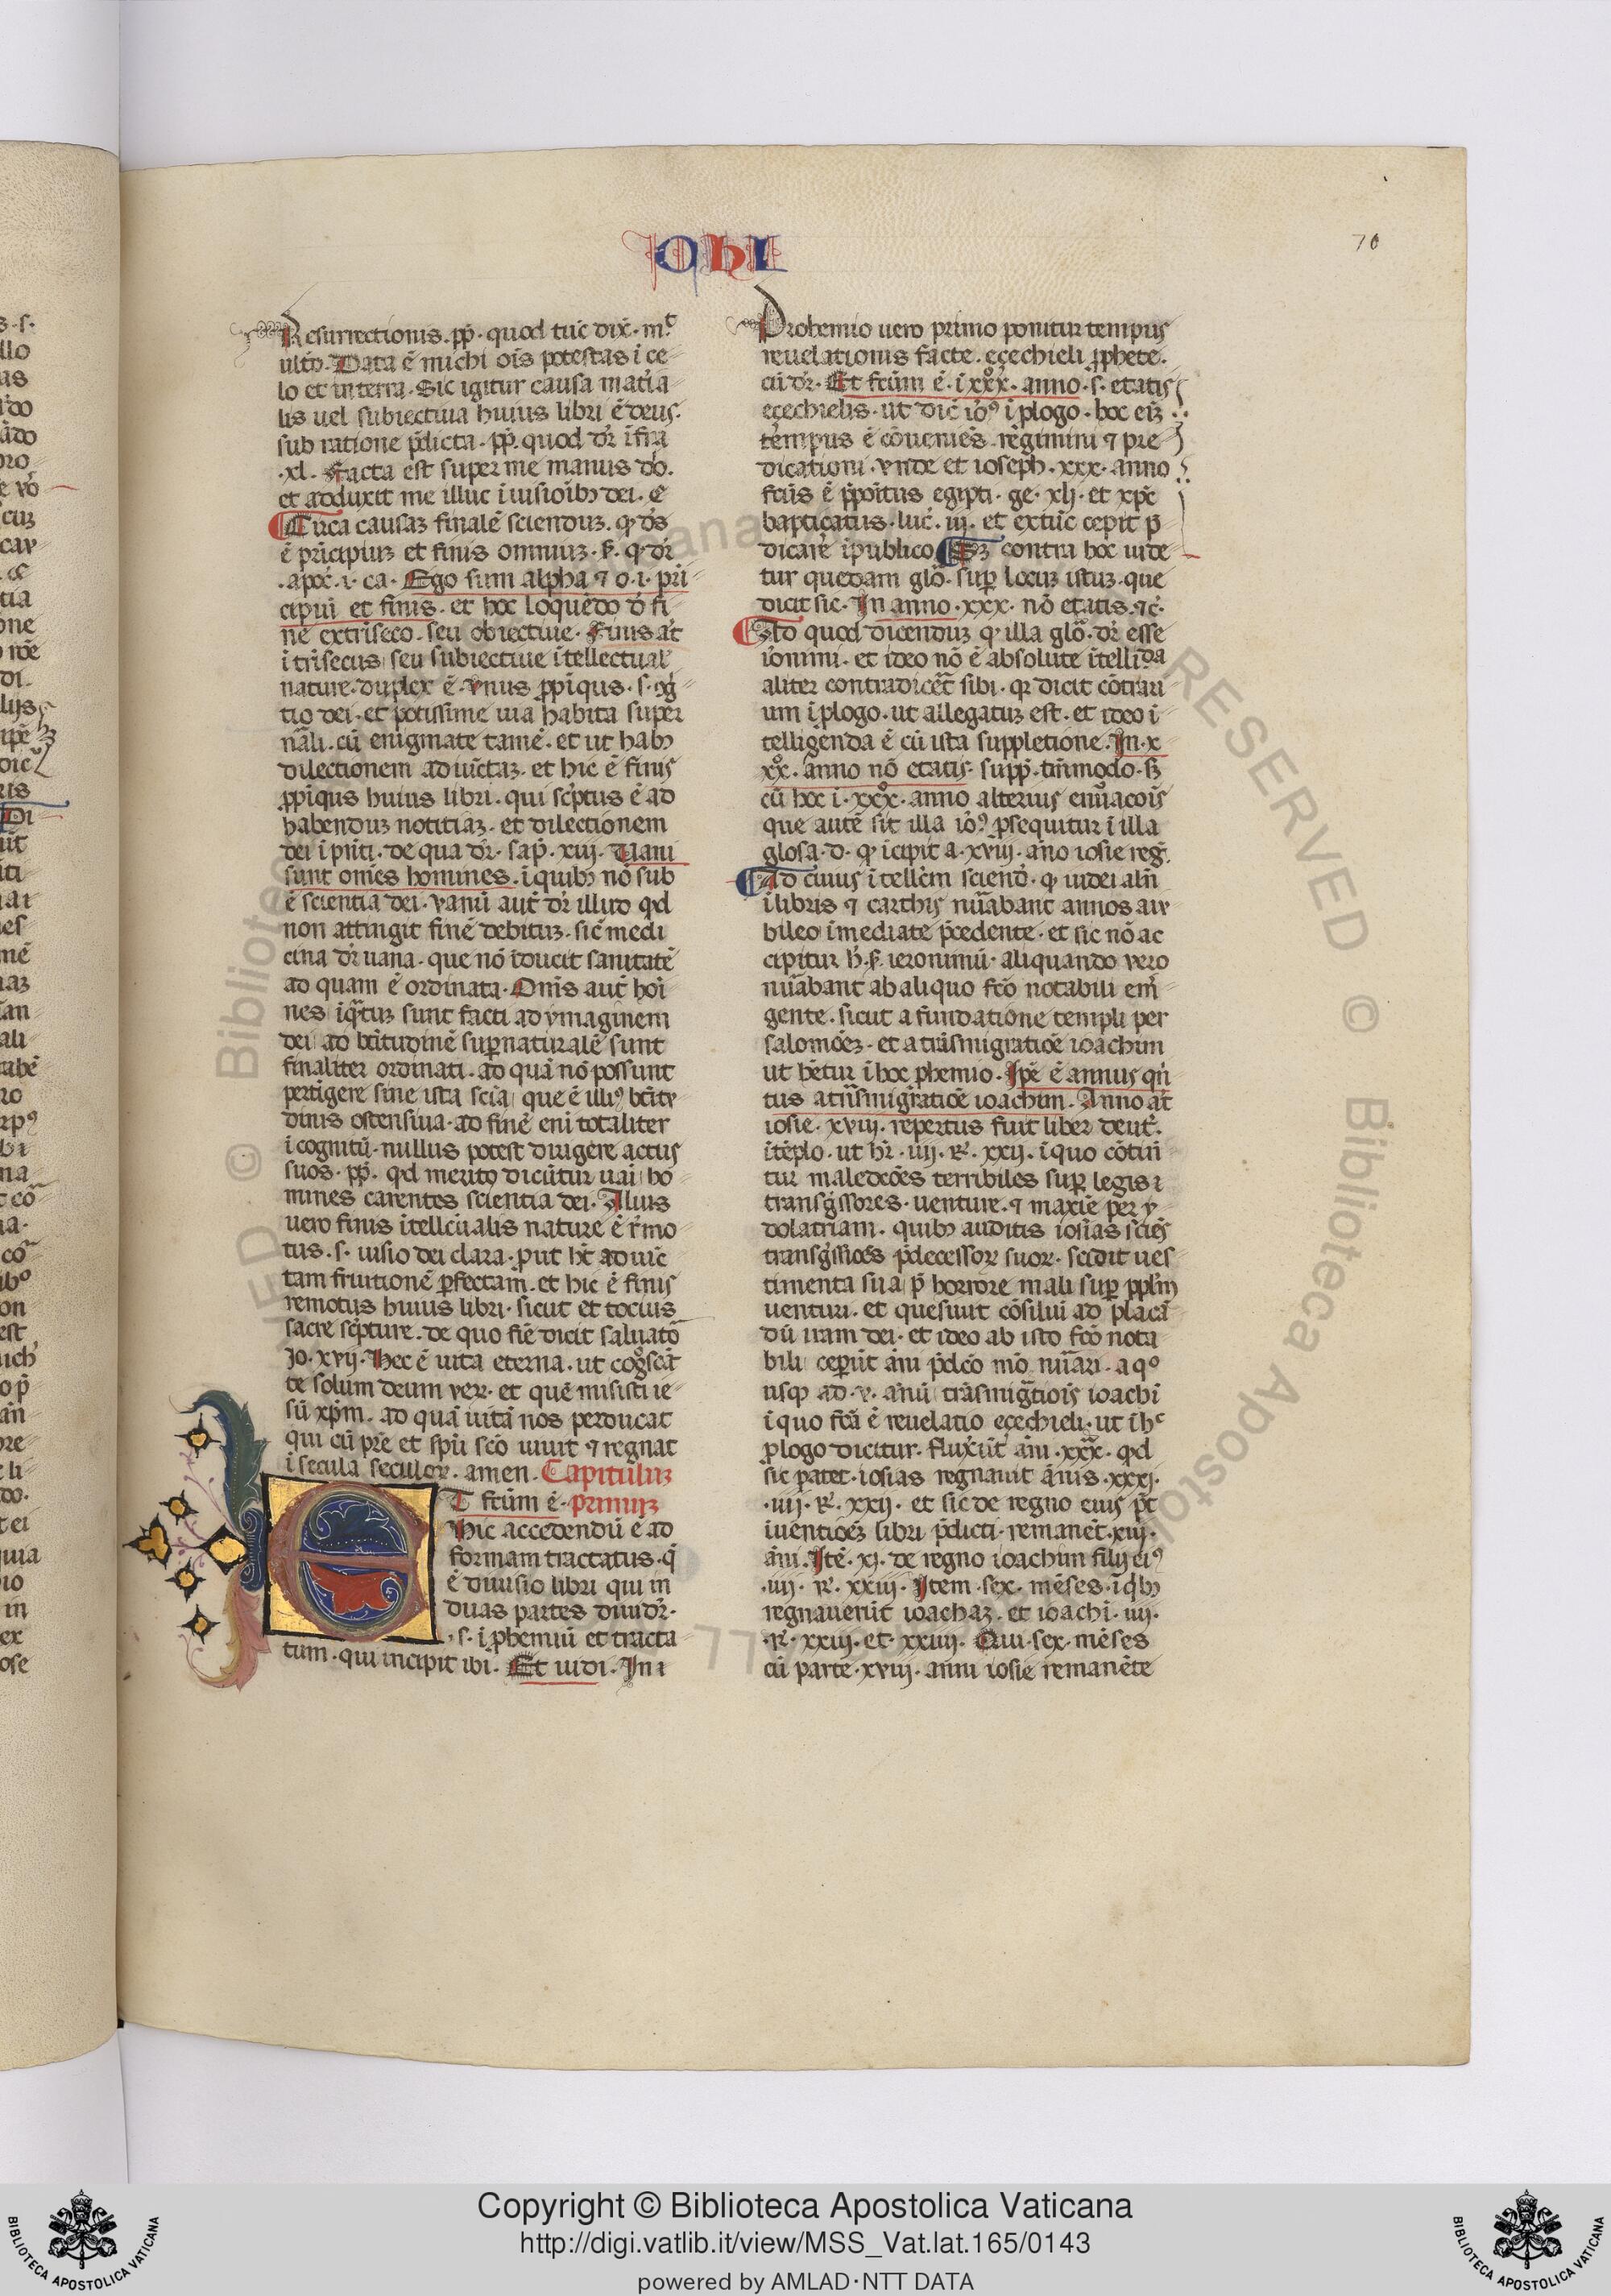 OHI
70
Resurrectionis. pp̄. quod tūc dix̄. mͭ
ultō. Data ē michi oīs potestas ī ce
lo et in terra. Sic igitur causa mat̄ia
lis uel subiectiua huius libri ē deus.
sub ratione p̄dicta. pp̄. quod dr̄ īfra
.xl. Facta est super me manus dō.
et adduxit me illuc ī uisioībꝫ dei. C
irca causaꝫ finalē sciendūꝫ. qꝫ dꝰs
ē prīcipiuꝫ et finis omniuꝫ. ẜ. qꝫ dr̄
.apoc̄. i. ca. Ego sum alpha ⁊ o. i. prī
cipiū et finis. et hoc loquēdo d̄ fi
ne extrīseco. seu obiectiue. Finis aūt
ītrīsecus seu subiectiue ītellectual̄
nature. duplex ē. vnus ꝓpīqus. s. cōg
tio dei. et potissime uia habita super
nāli. cū enigmate tamē. et ut habꝫ
dilectionem adiūctaꝫ. et hic ē finis
ꝓpīqus huius libri. qui scp̄tus ē ad
habenduꝫ notitiāꝫ. et dilectionem
dei ī pn̄ti. de qua dr̄. sap̄. xiij. Uani
sunt om̄es homines. ī quibꝫ nō sub
ē scientia dei. vanū aut̄ dr̄ illud qd̄
non attingit finē debituꝫ. sic̄ medi
cina dr̄ uana. que nō īducit sanitatē
ad quam ē ordinata. Om̄s aut̄ hoī
nes īqͣtuꝫ sunt facti ad ymaginem
dei ad btītudinē suꝑnaturalē sunt
finaliter ordinati. ad quā nō possunt
pertīgere sine ista scīa que ē illiꝰ btīty
dinis ostensiua. ad finē eni totaliter
ī cognitū. nullus potest dirigere actus
suos. pp̄. qd̄ merito dicūtur uāi ho
mines carentes scientia dei. Alius
uero finis ītellc̄ualis nature ē r̄mo
tus. s. uisio dei clara. ꝓut hꝫ adiūc
tam fruitionē ꝑfectam. et hic ē finis
remotus huius libri. sicut et tocius
sacre scp̄ture. de quo fīe dicit saluatō
Jo. xvij. Hec ē uita eterna. ut cogͦscāt
te solum deum ver̄. et quē misisti ie
sū xp̄m. ad quā uitā nos perducat
qui cū pr̄e et spū scō uiuit ⁊ regnat
ī secula seculoꝝ. amen. Capituluꝫ
ET fcūm ē. primuꝫ
Hic accedendū ē ad
formam tractatus. q̄
ē diuisio libri qui in
duas partes diuidr̄.
.s. ī ꝓhemiū et tracta
tum. qui incipit ibi. Et uidi. In ı
Prohemio uero primo ponitur tempus
reuelationis facte. eçechieli ꝓphete.
cū dr̄. Et fcūm ē. ī xxxͦ. anno. s. etatis
eçechielis. ut dic̄ ioꝰ ī ꝓlogo. hoc eīꝫ
tempus ē cōueniēs regimini ⁊ pre
dicationi. vnde et ioseph. xxx. anno
fcūs ē p̄pōitus egipti. ge. xlj. et xp̄c
bapticatus. luc̄. iij. et extūc cepit p̄
dicare īpublico. Sꝫ contra hoc uide
tur quedam glō. suꝑ locuꝫ istuꝫ. que
dicit sic. In anno. xxx. nō etatis. ⁊c̄.
Ad quod dicenduꝫ qꝫ illa glō. dr̄ esse
iōnini. et ideo nō ē absolute ītelliᵈᵃ
aliter contradicēt sibi. qꝛ dicit cōtrari
um ī ꝓlogo. ut allegatuꝫ est. et ideo ī
telligenda ē cū ista suppletione. In. x
xxͦ. anno nō etatis. supp̄. tm̄modo. sꝫ
cū hoc ī. xxxͦ. anno alterius enūacōis
que autē sit illa ioꝰ ꝓsequitur ī illa
glosa. d. qꝫ īcipit a. xviij. āno iosie reḡ.
Ad cuius ītellcm̄ sciend̄. qꝫ iudei alīn
ī libris ⁊ carthis nūabant annos a iu
bileo īmediate p̄cedente. et sic nō ac
cipitur h̄. ẜ. ieronimū. aliquando vero
nūabant ab aliquo fcō notabili em̄
gente. sicut a fundatione templi per
salomōeꝫ. et a trāsmigratiōe ioachim
ut hētur ī hoc ꝓhemio. Ip̄e ē annus qn̄
tus atrāsmigratiōe ioachim. Anno aūt
iosie. xviij. repertus fuit liber deut̄.
ītēplo. ut hr̄. iiij. R̄. xxij. ī quo cōtin̄
tur maledcōes terribiles suꝑ legis ı
transḡssores. uenture. ⁊ maxīe per y
dolatriam. quibꝫ auditis iosias sciēs
transḡssiōes p̄decessoꝝ suoꝝ. scidit ues
timenta sua p̄ horrore mali suꝑ ppl̄m
uenturi. et quesiuit cōsiluı ad placā
dū iram dei. et ideo ab isto fcō nota
bili ceperūt āni p̄dcō mō nūari. a qͦ
usqꝫ ad. v. annū trāsmigͣtiōis ioachī
ī quo fcā ē reuelatio eçechieli. ut ī hͨ
ꝓlogo dicitur. fluxerūt āni. xxx. qd̄
sic patet. iosias regnauit ānis. xxxj.
.iiij. R̄. xxij. et sic de regno eius pꝰt
īuentiōeꝫ libri p̄dicti. remanēt. xiij.
āni. Itē. xj. de regno ioachim filij eiꝰ
.iiij. R̄. xxiij. Item. sex. mēses. īqͥbꝫ
regnauerūt ioachaꝫ. et ioachī. iiij.
.R̄. xxiij. et. xxiiij. Qui. sex. mēses
cū parte. xviij. anni iosie remanēte
© Biblioteca Apostolica Vaticana
RESERVED © Biblioteca Apostolica
Copyright © Biblioteca Apostolica Vaticana
http://digi.vatlib.it/view/MSS_Vat.lat.165/0143
powered by AMLAD·NTT DATA
BIBLIOTECA APOSTOLICA VATICANA
BIBLIOTECA APOSTOLICA VATICANA